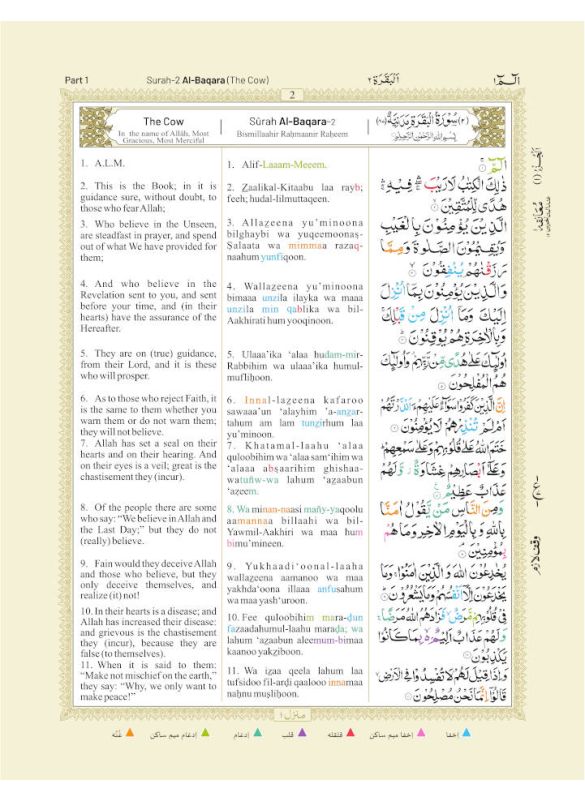 Part 1
Surah-2 Al-Baqara (The Cow)
اَلْبَقَرَة ٢
الٓمّٓ ١
2
The Cow
In the name of Allāh, Most
Gracious, Most Merciful
1. A.L.M.
2. This is the Book; in it is
guidance sure, without doubt, to
those who fear Allah;
3. Who believe in the Unseen,
are steadfast in prayer, and spend
out of what We have provided for
them;
4. And who believe in the
Revelation sent to you, and sent
before your time, and (in their
hearts) have the assurance of the
Hereafter.
5. They are on (true) guidance,
from their Lord, and it is these
who will prosper.
6. As to those who reject Faith, it
is the same to them whether you
warn them or do not warn them;
they will not believe.
7. Allah has set a seal on their
hearts and on their hearing. And
on their eyes is a veil; great is the
chastisement they (incur).
8. Of the people there are some
who say: “We believe in Allah and
the Last Day;” but they do not
(really) believe.
9. Fain would they deceive Allah
and those who believe, but they
only deceive themselves, and
realize (it) not!
10. In their hearts is a disease; and
Allah has increased their disease:
and grievous is the chastisement
they (incur), because they are
false (to themselves).
11. When it is said to them:
“Make not mischief on the earth,”
they say: “Why, we only want to
make peace!”
Sūrah Al-Baqara–2
Bismillaahir Raḥmaanir Raḥeem
1. Alif-Laaam-Meeem.
2. Zaalikal-Kitaabu laa rayb;
feeh; hudal-lilmuttaqeen.
3. Allazeena yu’minoona
bilghaybi wa yuqeemoonaṣ-
Ṣalaata wa mimmaa razaq-
naahum yunfiqoon.
4. Wallazeena yu’minoona
bimaaa unzila ilayka wa maaa
unzila min qablika wa bil-
Aakhirati hum yooqinoon.
5. Ulaaa’ika ‘alaa hudam-mir-
Rabbihim wa ulaaa’ika humul-
mufliḥoon.
6. Innal-lazeena kafaroo
sawaaa’un ‘alayhim ’a-anzar-
tahum am lam tunzirhum laa
yu’minoon.
7. Khatamal-laahu ‘alaa
quloobihim wa ‘alaa sam‘ihim wa
‘alaaa abṣaarihim ghishaa-
watuñw-wa lahum ‘azaabun
‘azeem.
8. Wa minan-naasi mañy-yaqoolu
aamannaa billaahi wa bil-
Yawmil-Aakhiri wa maa hum
bimu’mineen.
9. Yukhaadi‘oonal-laaha
wallazeena aamanoo wa maa
yakhda‘oona illaaa anfusahum
wa maa yash‘uroon.
10. Fee quloobihim mara-ḍun
fazaadahumul-laahu maraḍa; wa
lahum ‘azaabun aleemum-bimaa
kaanoo yakziboon.
11. Wa iza qeela lahum laa
tufsidoo fil-arḍi qaalooo innamaa
naḥnu muṣliḥoon.
سُوْرَةُ الْبَقَرَةِ مَدَنِيَّةٌ
بِسْمِ اللهِ الرَّحْمٰنِ الرَّحِيْمِ
الٓمّٓ
ذٰلِكَ الْكِتٰبُ لَا رَيْبَ فِيْهِ
هُدًى لِّلْمُتَّقِيْنَ
الَّذِيْنَ يُؤْمِنُوْنَ بِالْغَيْبِ
وَيُقِيْمُوْنَ الصَّلٰوةَ وَمِمَّا
رَزَقْنٰهُمْ يُنْفِقُوْنَ
وَالَّذِيْنَ يُؤْمِنُوْنَ بِمَآ اُنْزِلَ
اِلَيْكَ وَمَآ اُنْزِلَ مِنْ قَبْلِكَ
وَبِالْاٰخِرَةِ هُمْ يُوْقِنُوْنَ
اُولٰٓئِكَ عَلٰى هُدًى مِّنْ رَّبِّهِمْ وَاُولٰٓئِكَ
هُمُ الْمُفْلِحُوْنَ
اِنَّ الَّذِيْنَ كَفَرُوْا سَوَآءٌ عَلَيْهِمْ ءَاَنْذَرْتَهُمْ
اَمْ لَمْ تُنْذِرْهُمْ لَا يُؤْمِنُوْنَ
خَتَمَ اللهُ عَلٰى قُلُوْبِهِمْ وَعَلٰى سَمْعِهِمْ
وَعَلٰٓى اَبْصَارِهِمْ غِشَاوَةٌ وَّلَهُمْ
عَذَابٌ عَظِيْمٌ
وَمِنَ النَّاسِ مَنْ يَّقُوْلُ اٰمَنَّا
بِاللهِ وَبِالْيَوْمِ الْاٰخِرِ وَمَا هُمْ
بِمُؤْمِنِيْنَ
يُخٰدِعُوْنَ اللهَ وَالَّذِيْنَ اٰمَنُوْا وَمَا
يَخْدَعُوْنَ اِلَّآ اَنْفُسَهُمْ وَمَا يَشْعُرُوْنَ
فِيْ قُلُوْبِهِمْ مَّرَضٌ فَزَادَهُمُ اللهُ مَرَضًا
وَلَهُمْ عَذَابٌ اَلِيْمٌ بِمَا كَانُوْا
يَكْذِبُوْنَ
وَاِذَا قِيْلَ لَهُمْ لَا تُفْسِدُوْا فِى الْاَرْضِ
قَالُوْٓا اِنَّمَا نَحْنُ مُصْلِحُوْنَ
وقف لازم
منزل ١
اخفا
اخفا میم ساکن
قلقله
قلب
ادغام
ادغام میم ساکن
غنّه